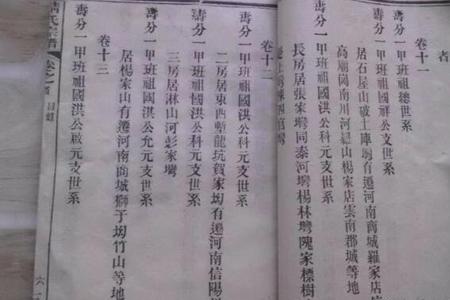 者
卷十一
壽分一甲班祖總世系
壽分一甲班祖國祥公文世系
居石屋山破土庫坳有遷河南商城羅家店
高廟崗南川河經山楊家店雲南郡城等地
壽分一甲班祖國洪公科元支世系
長房居張家塆同泰河塆楊林塆隗家標樹
卷十二
壽分一甲班祖國洪公科元支世系
二房居東西塹龍坑貿家坳有遷河南信陽
壽分一甲班祖國洪公科元支世系
三房居淋山河彭家塆
壽分一甲班祖國洪公允元支世系
居楊家山有遷河南商城獅于坳竹山等地
卷十三
壽分一甲班祖國洪公啟元支世系
氏宗譜
卷之首
目錄
六